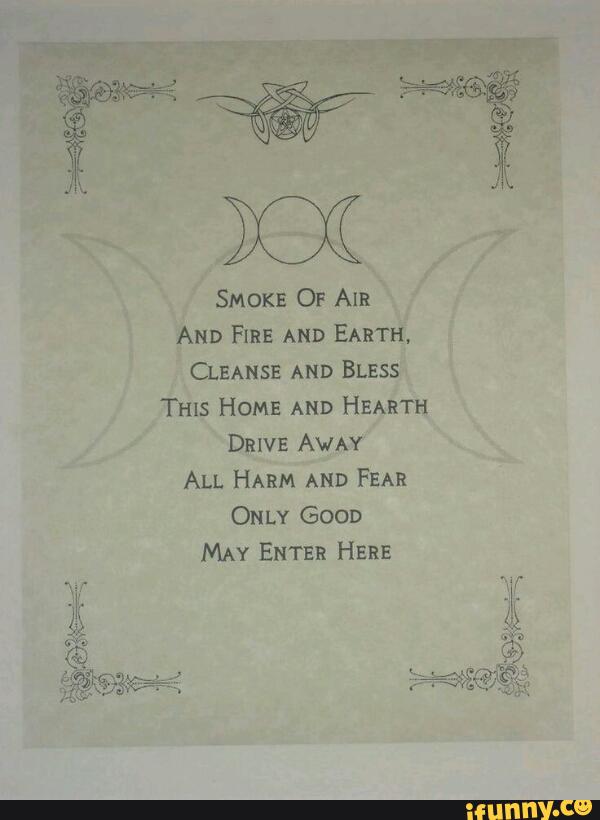 Smoke Of Air
And Fire and Earth,
Cleanse and Bless
This Home and Hearth
Drive Away
All Harm and Fear
Only Good
May Enter Here
ifunny.co